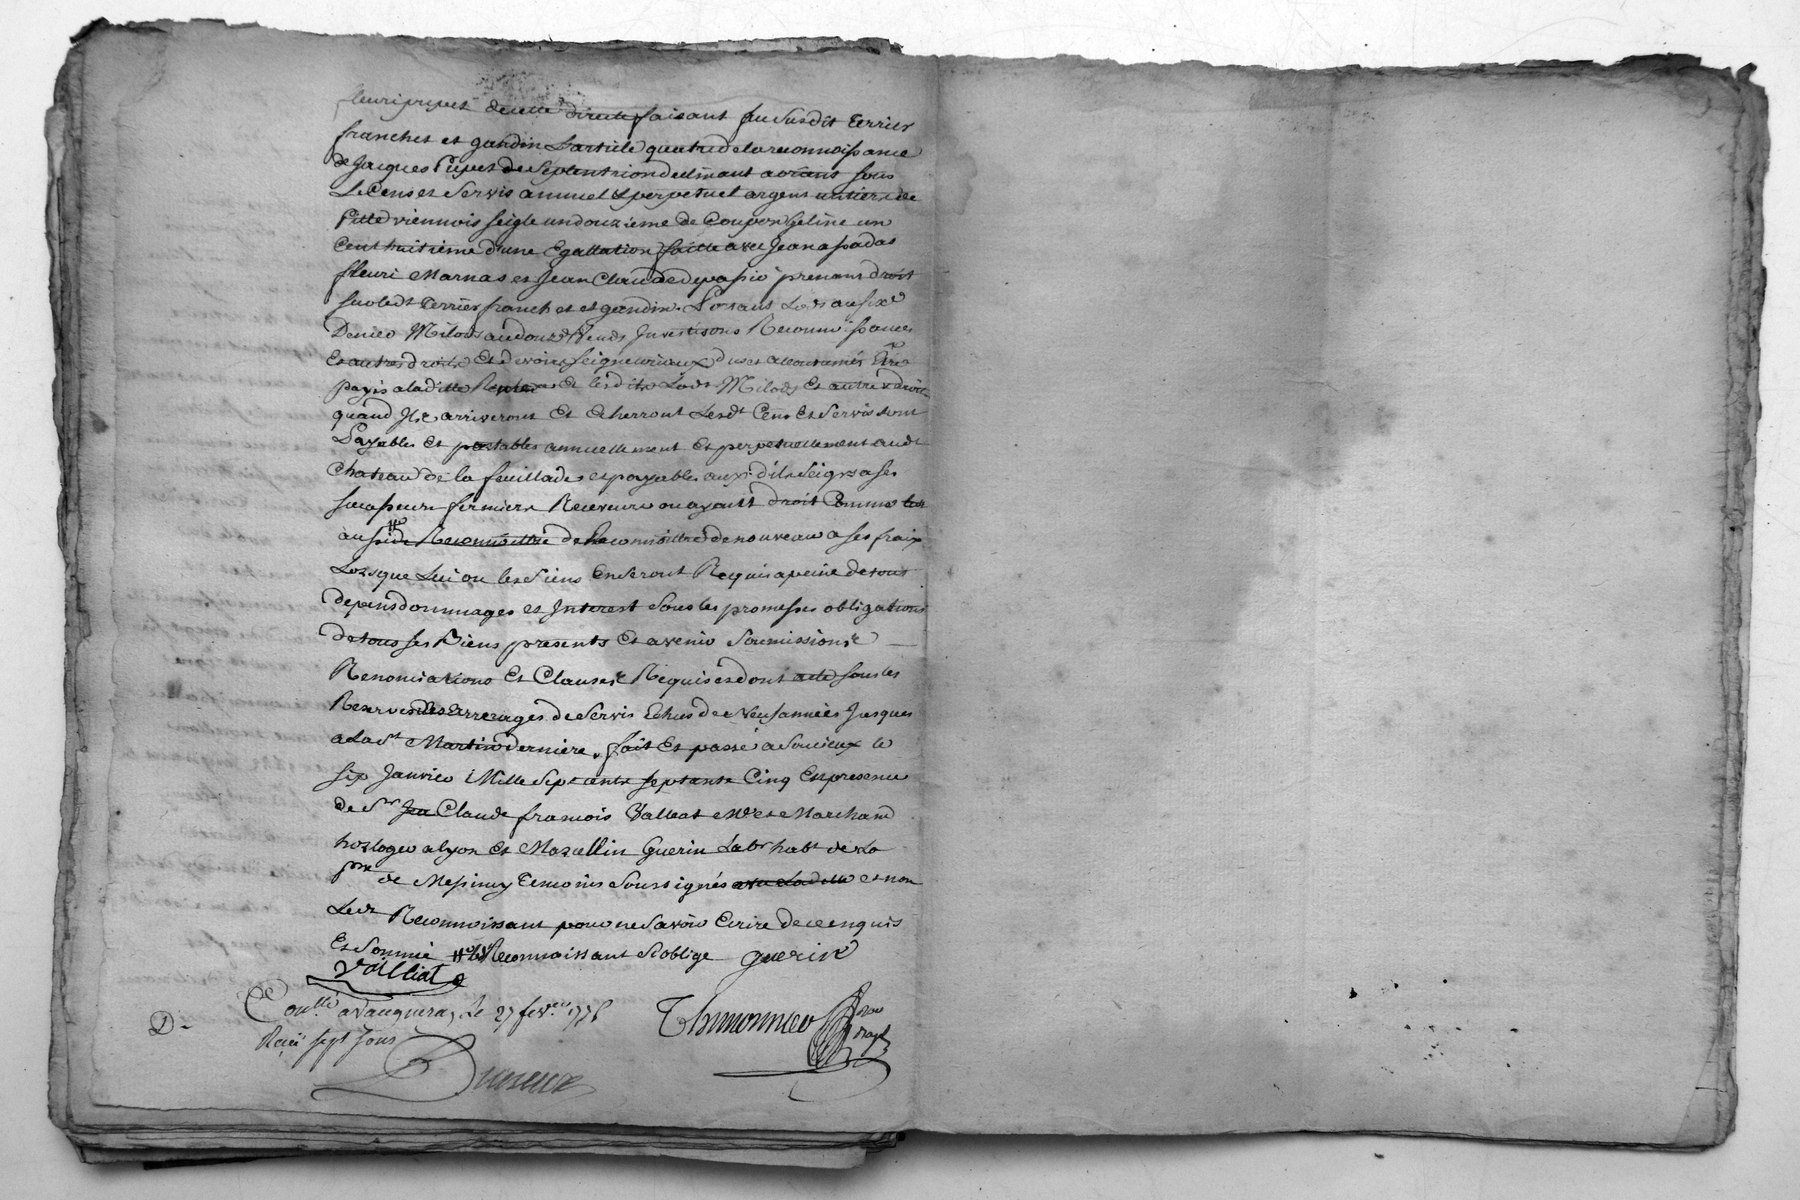 fleuri pupet de cette directe faisant su susdit Terrier
franchet et gandin L'article quatre de la reconnoissance
de Jacques Pupet de Septentrion declinant a orient sous
Le Cens et Servis annuel & perpetuel argent un tiers de
Pitte viennois seigle un douzieme de Coupon geline un
Cent huitieme d'une Egallation faitte avec Jean apadas
fleuri Marnas et Jean Claude depassio prenant droit
sur ledt Terrier franchet et gandin. Portant Lods au sixe
Denier Milods au douze Vends Investisons Reconnoissances
Et autres droits Et devoirs seigneuriaux dus et accoutumés Etre
payés a laditte Rente et lesdits Lods Milods Et autres droits
quand Ils arriveront Et Echerront Lesdt Cens Et Servis sont
Payables Et portables annuellement Et perpetuellement audt
Chateau de la feuillade et payables auxdits Seigrs a ses
successeurs fermiers Receveurs ou ayants droit Comme
aussi de Reconnoittre de nouveau a ses fraix
Lorsque Lui ou les Siens En Seront Requis a peine de tous
depens dommages et Interest Sous les promesses obligations
de tous ses Biens presents Et avenir Soumissions
Renonciations Et Clauses Requises dont acte sous les
Reserves des arrerages de Servis Echus de Neuf années Jusques
a La St Martin derniere, fait Et passé a Soucieux le
six Janvier Mille Sept cents septante Cinq En presence
de Sr Jea Claude francois Valleat Me et Marchand
horloger a lyon Et Marcellin Guerin Labr habt de La
psse de Messimy Temoins Soussignés avec Laditte et non
Ledt Reconnoissant pour ne Savoir Ecrire de ce enquis
Et Sommé # le Reconnoissant S'oblige guerin
Valliat
Conllé a Vaugneray le 27 fevrier 1775
D- Thimonnier
Reçu sept sous